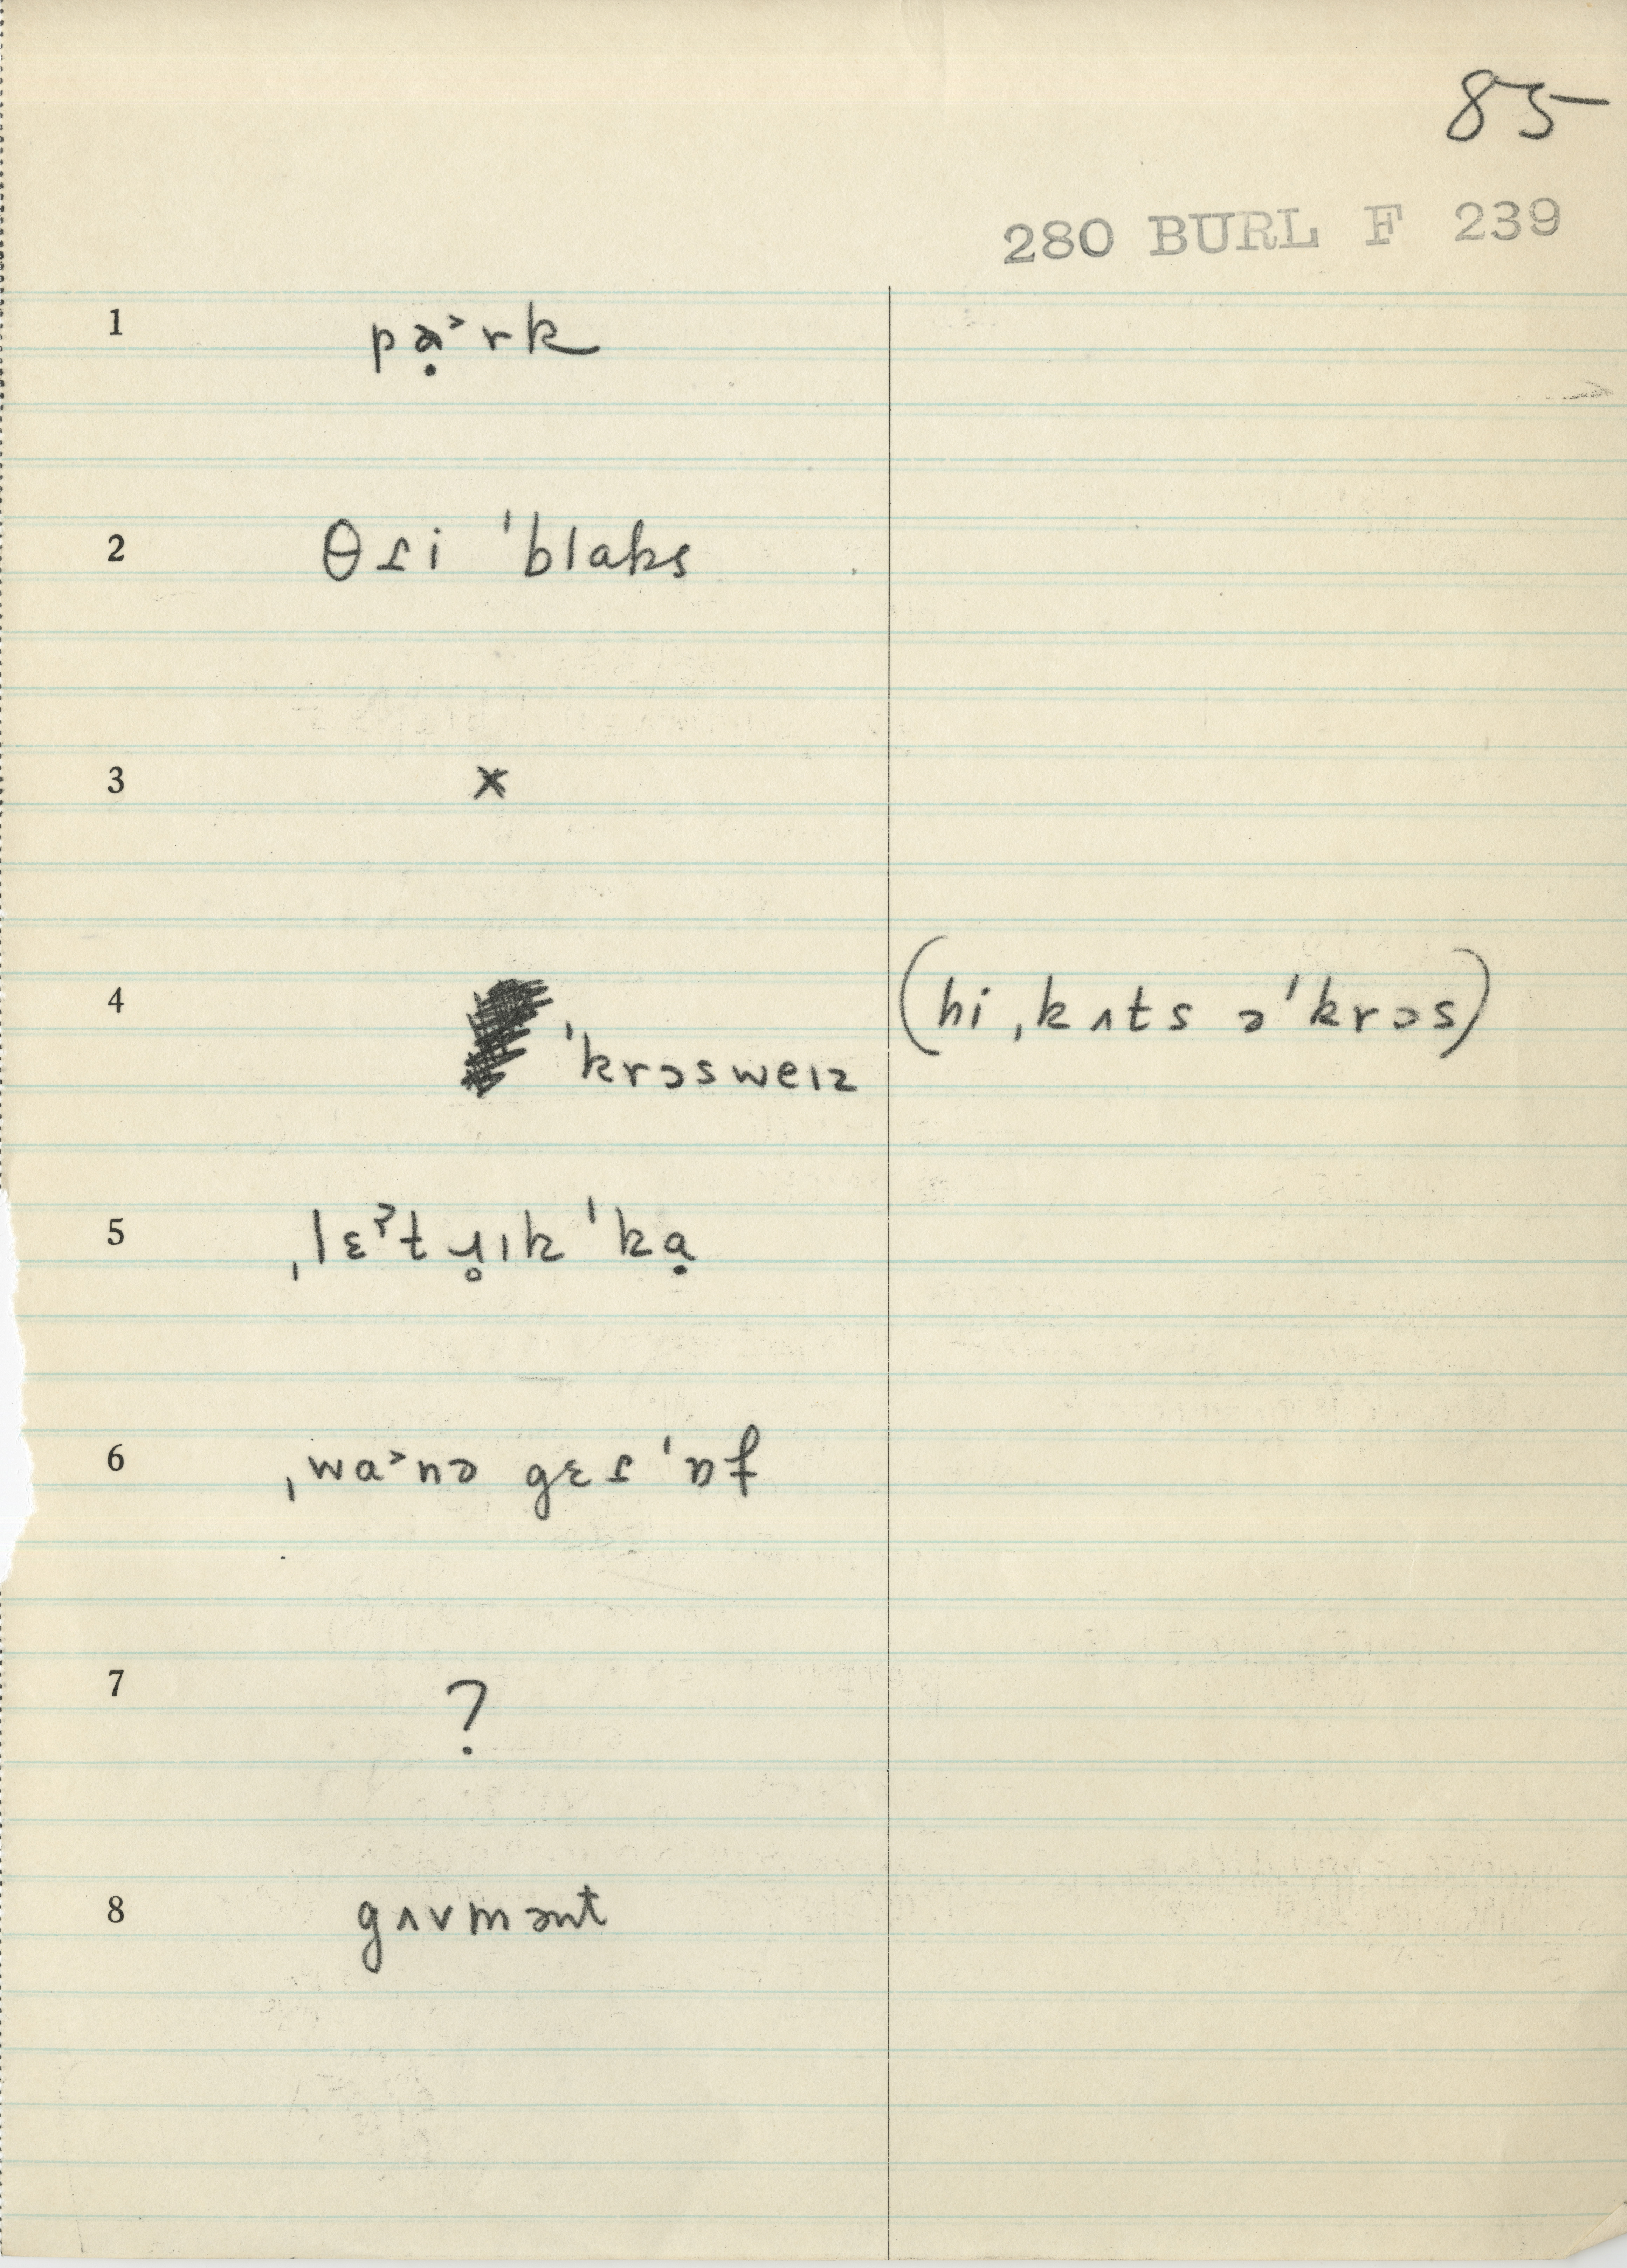 85
280 BURL F 239
1 pạ˃rk
2 θɾi ˈblaks
3 x
4 ˈkrɔsweɪz (hi ˌkʌts əˈkrɔs)
5 ˌlɛˀt ɹ̥ɪk ˈkạ
6 ˌwa˃nə gɛɾ ˈɒf
7 ?
8 gʌvmənt